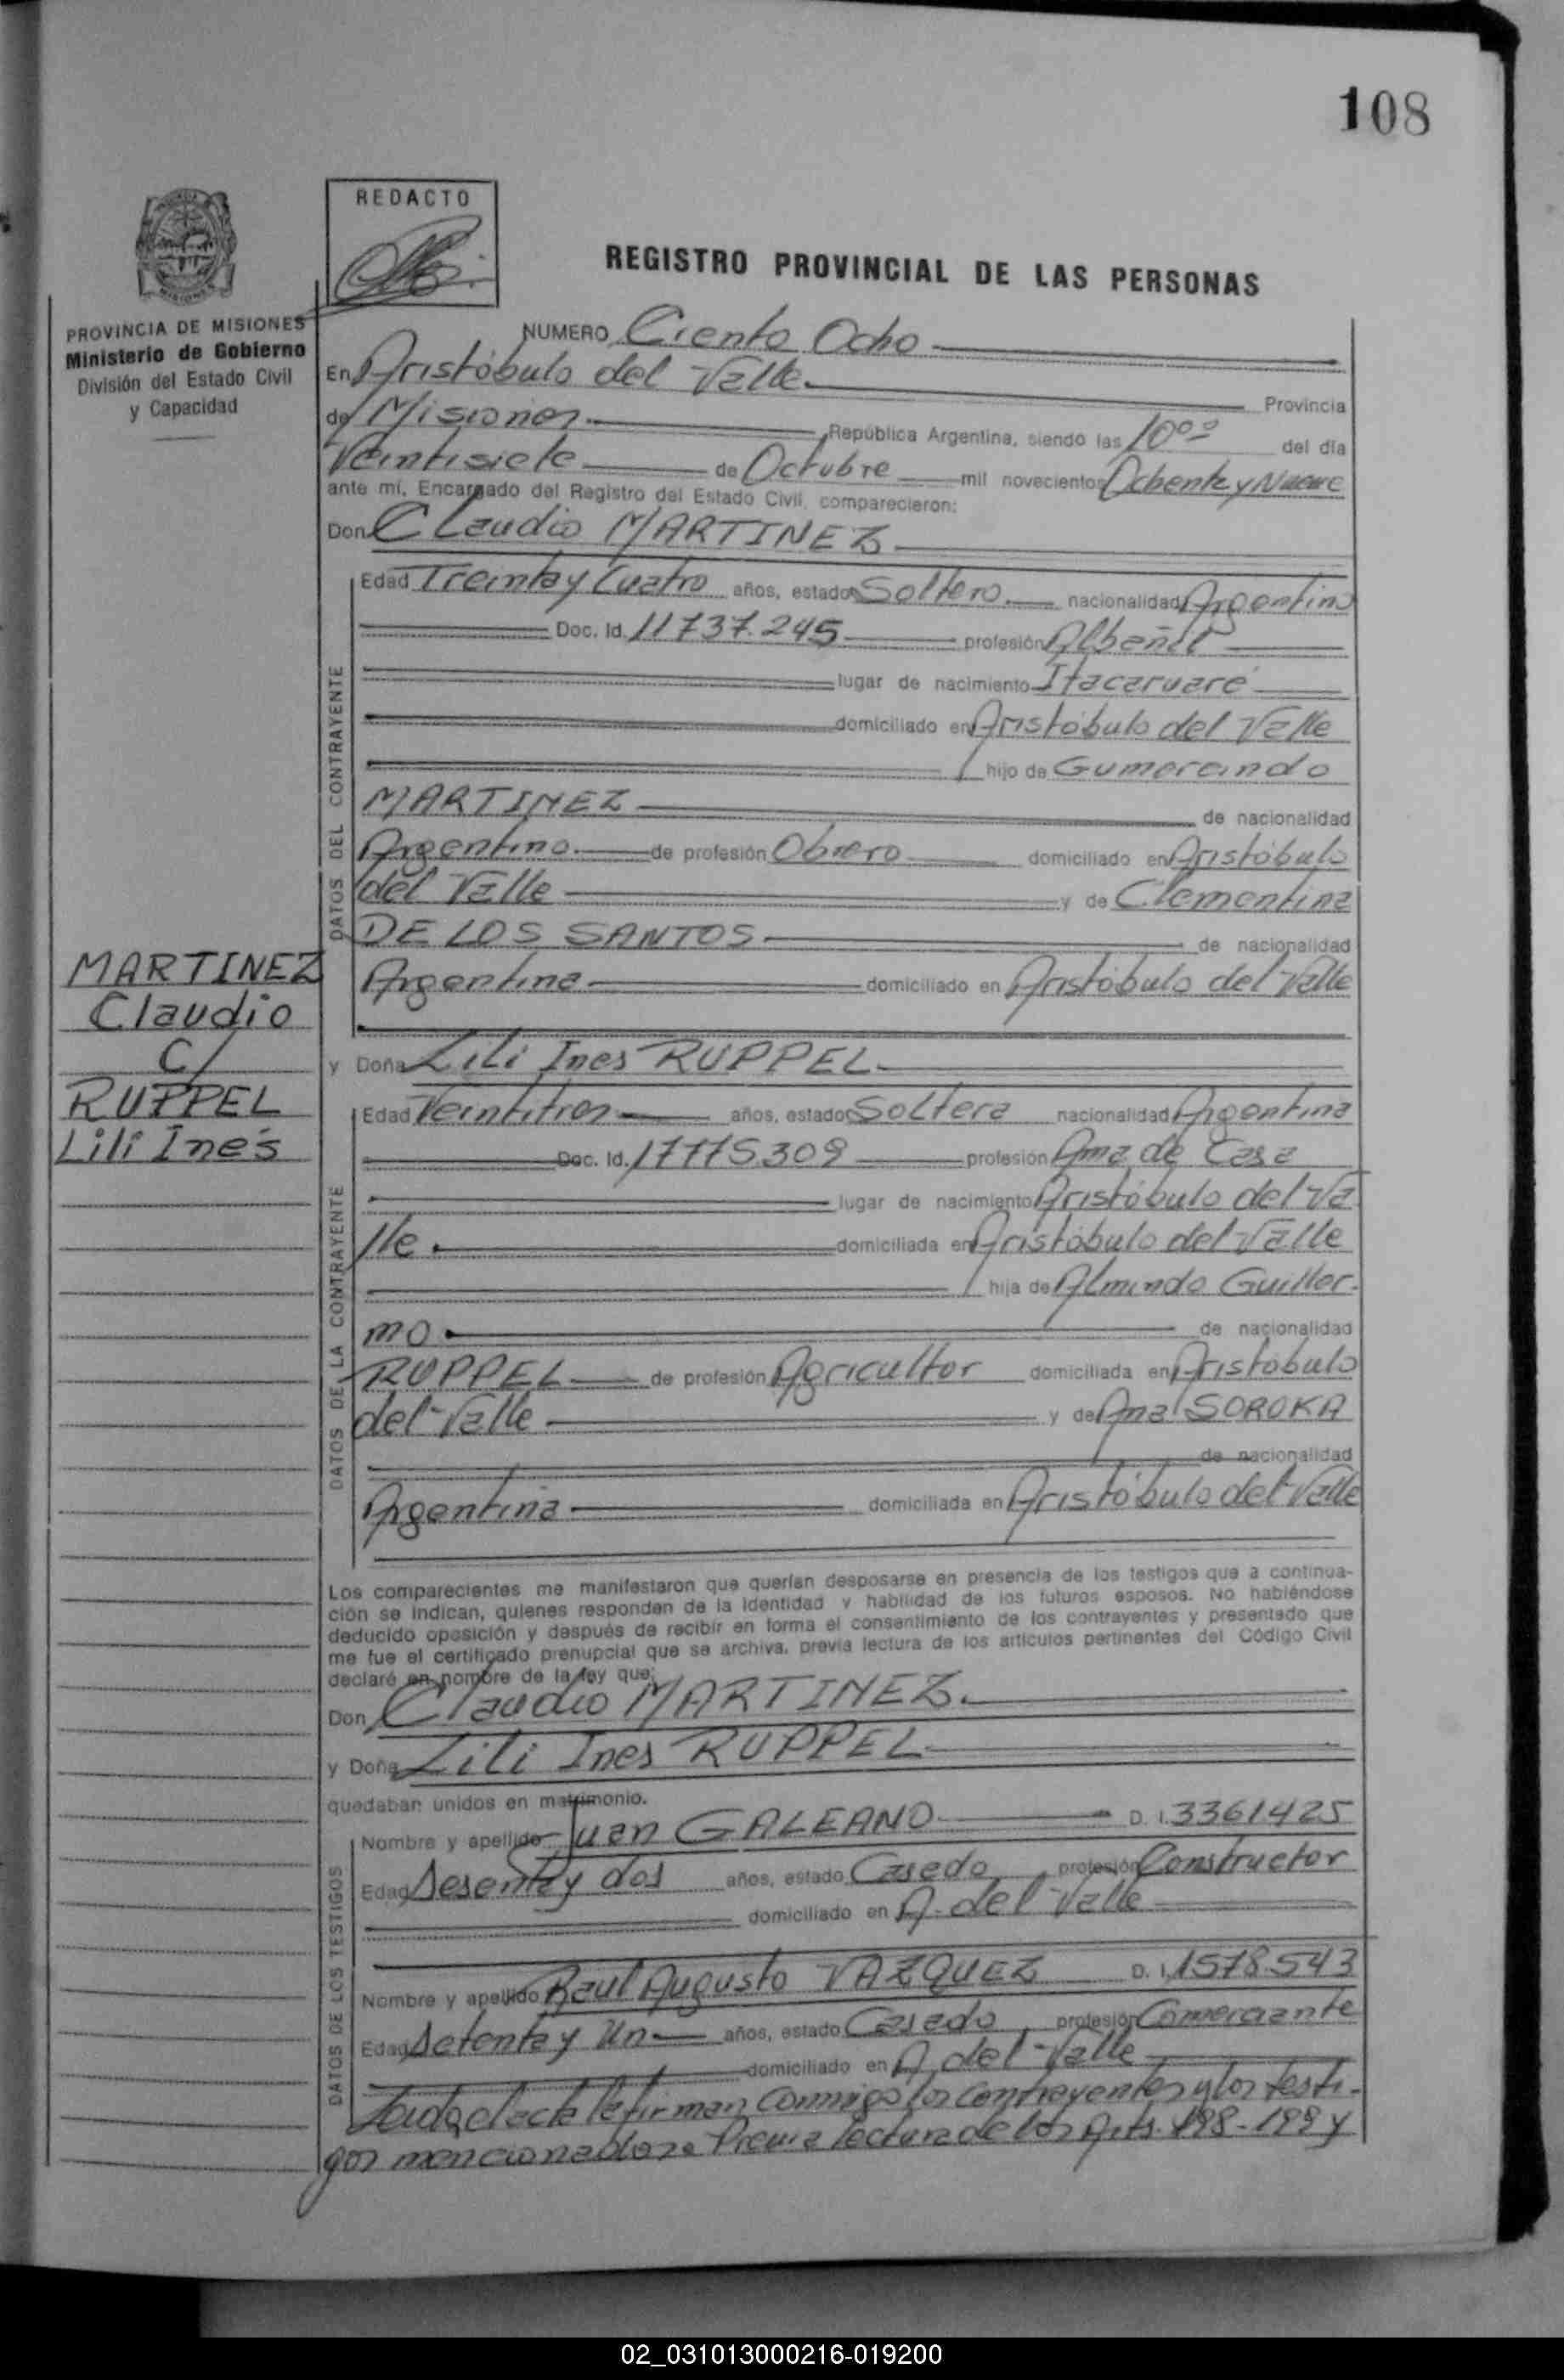 108
REDACTO
REGISTRO PROVINCIAL DE LAS PERSONAS
PROVINCIA DE MISIONES
Ministerio de Gobierno
División del Estado Civil
y Capacidad
NUMERO Ciento Ocho
En Aristóbulo del Valle Provincia
de Misiones República Argentina, siendo las 10ºº del día
Veintisiete de Octubre mil novecientos Ochenta y Nueve
ante mí, Encargado del Registro del Estado Civil, comparecieron:
Don Claudio MARTINEZ
DATOS DEL CONTRAYENTE
Edad Treinta y Cuatro años, estado Soltero nacionalidad Argentino
Doc. Id. 11737.245 profesión Albañil
lugar de nacimiento Itacaruaré
domiciliado en Aristóbulo del Valle
hijo de Gumercindo
MARTINEZ de nacionalidad
Argentino de profesión Obrero domiciliado en Aristóbulo
del Valle y de Clementina
DE LOS SANTOS de nacionalidad
Argentina domiciliado en Aristóbulo del Valle
MARTINEZ
Claudio
C/
RUPPEL
Lili Inés
y Doña Lili Ines RUPPEL
DATOS DE LA CONTRAYENTE
Edad Veintitres años, estado Soltera nacionalidad Argentina
Doc. Id. 17775309 profesión Ama de Casa
lugar de nacimiento Aristóbulo del Va
lle. domiciliada en Aristóbulo del Valle
hija de Almindo Guiller-
mo de nacionalidad
RUPPEL de profesión Agricultor domiciliada en Aristobulo
del Valle y de Ana SOROKA
de nacionalidad
Argentina domiciliada en Aristóbulo del Valle
Los comparecientes me manifestaron que querían desposarse en presencia de los testigos que a continua-
ción se indican, quienes responden de la identidad y habilidad de los futuros esposos. No habiéndose
deducido oposición y después de recibir en forma el consentimiento de los contrayentes y presentado que
me fue el certificado prenupcial que se archiva, previa lectura de los artículos pertinentes del Código Civil
declaré en nombre de la ley que:
Don Claudio MARTINEZ.
y Doña Lili Ines RUPPEL
quedaban unidos en matrimonio.
DATOS DE LOS TESTIGOS
Nombre y apellido Juan GALEANO D. I. 3361425
Edad Sesenta y dos años, estado Casado profesión Constructor
domiciliado en A. del Valle
Nombre y apellido Raul Augusto VAZQUEZ D. I. 1578543
Edad Setenta y Un años, estado Casado profesión Comerciante
domiciliado en A. del Valle
Leida el acta la firman conmigo los contrayentes y los testi-
gos mencionados. Previa lectura de los Arts. 198-199 y
02_031013000216-019200